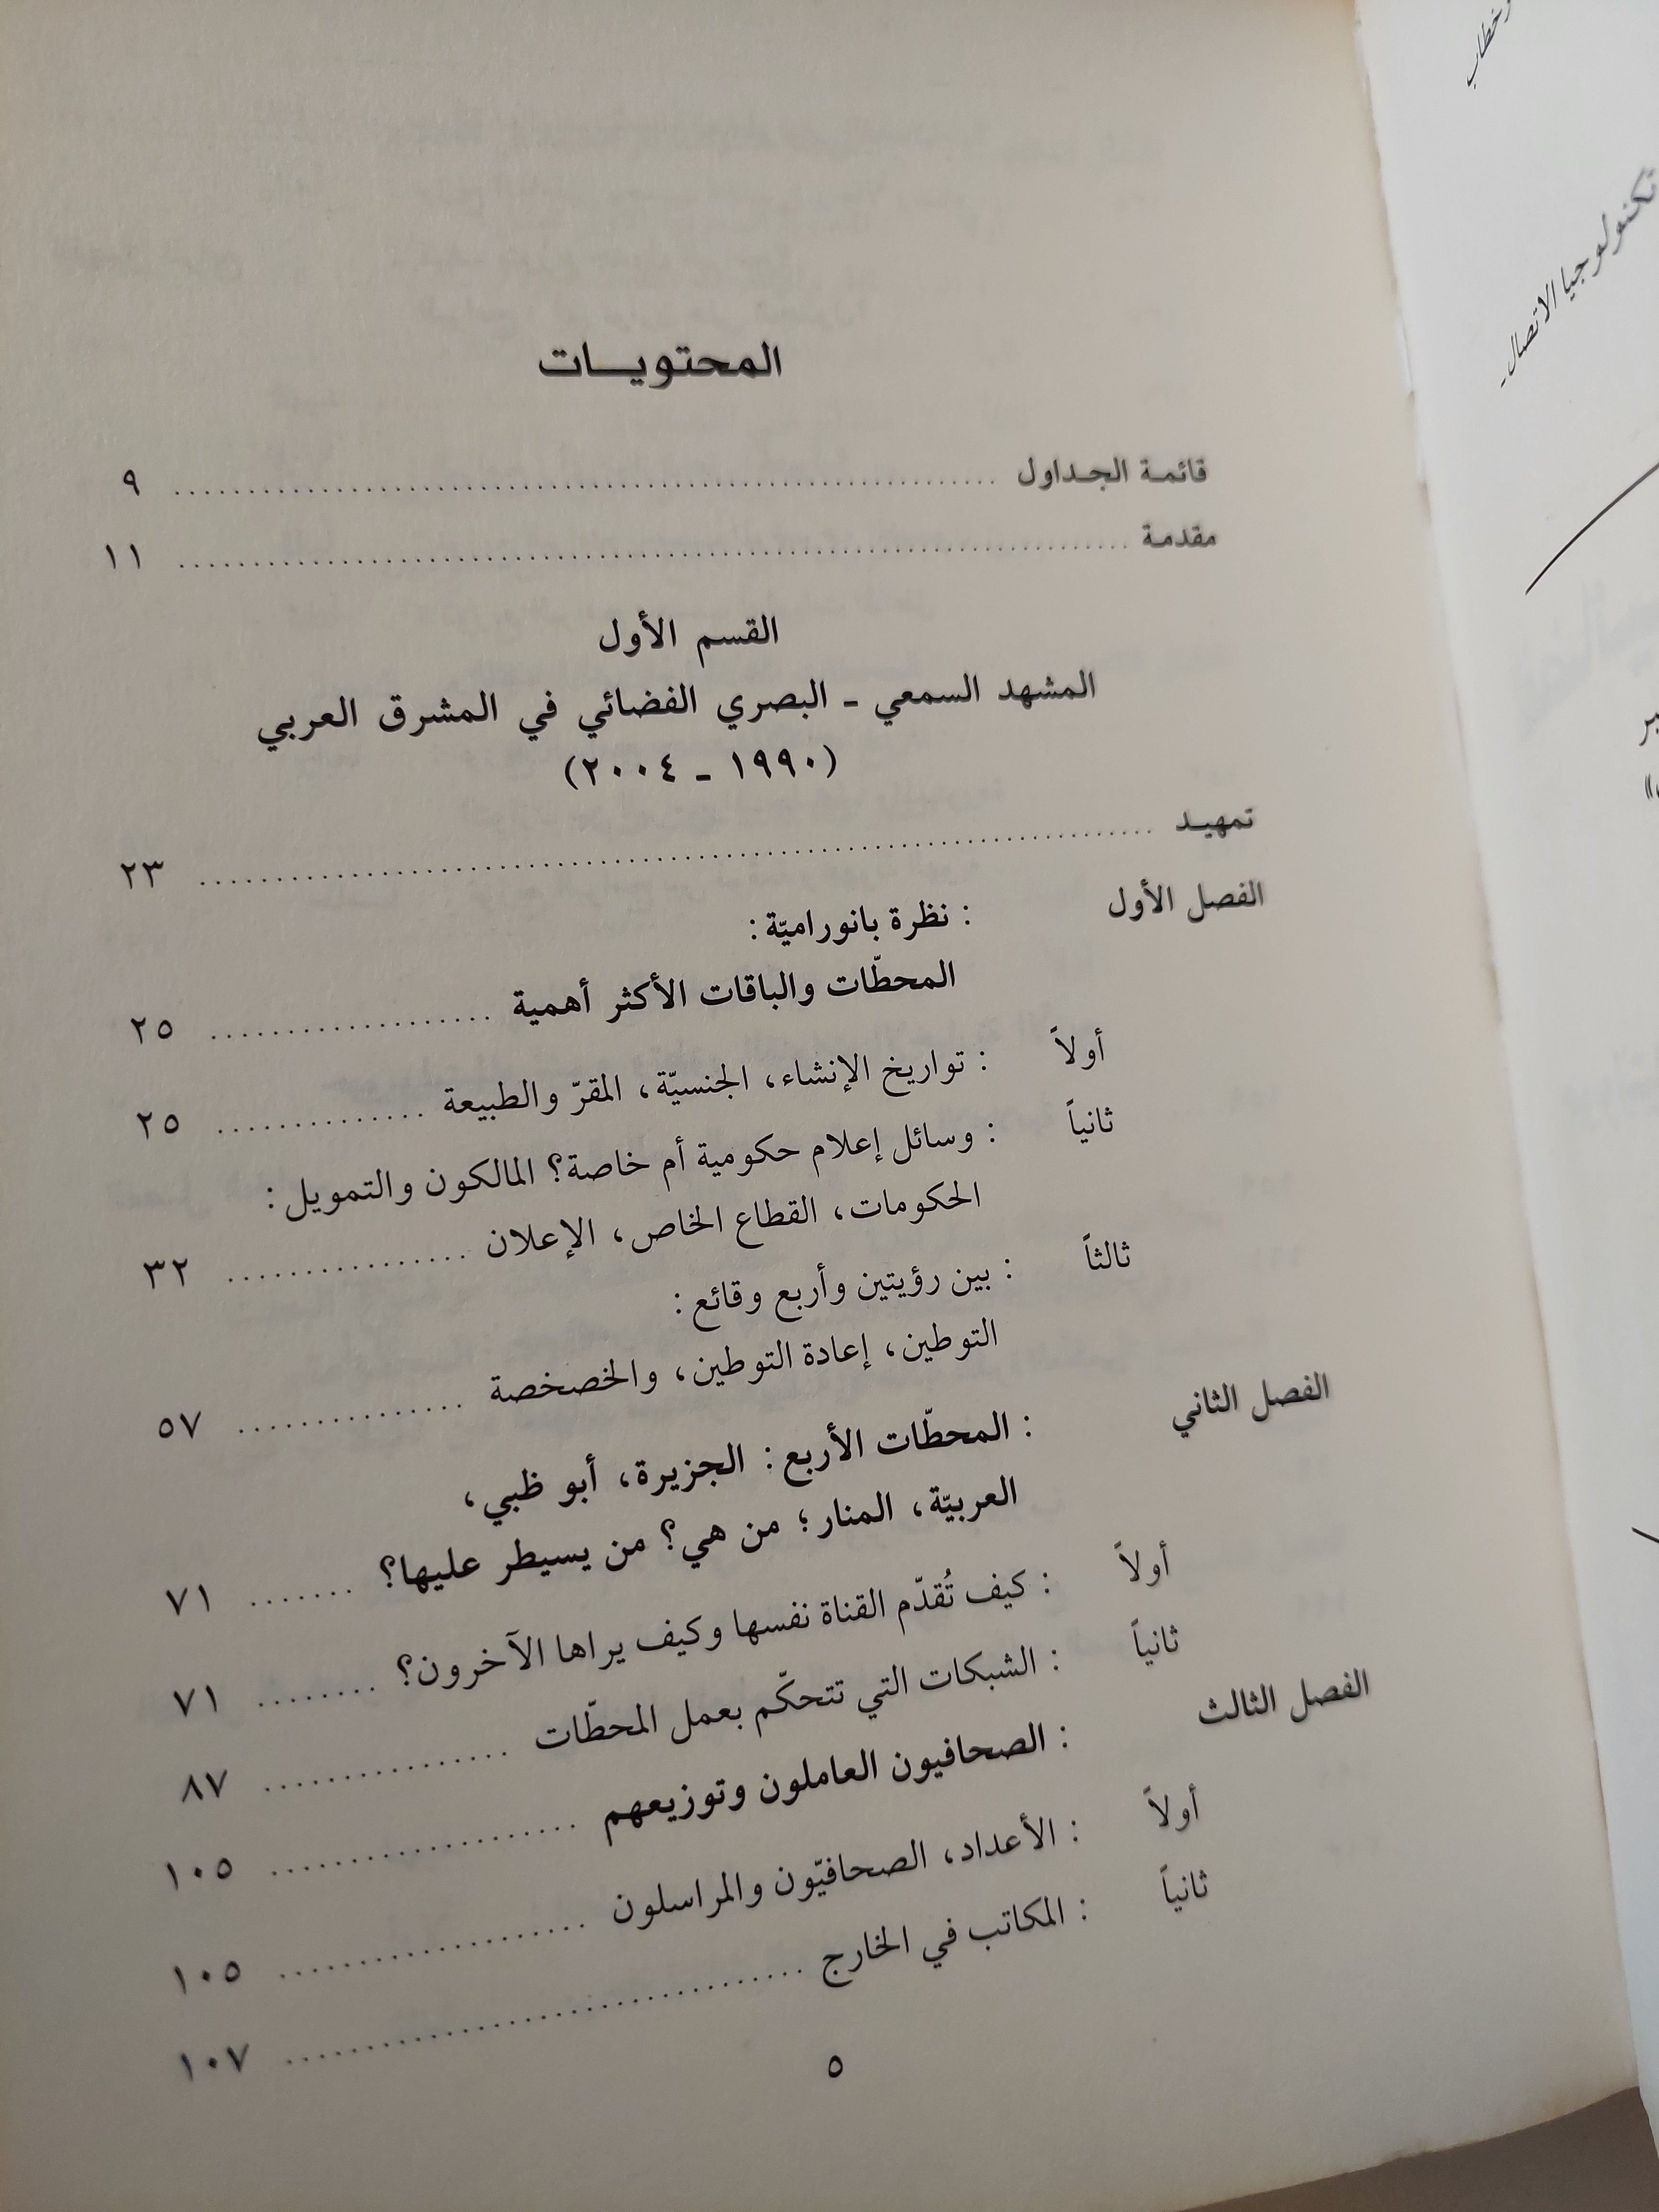 المحتويات
قائمة الجداول ........ ٩
مقدمة ........ ١١
القسم الأول
المشهد السمعي ـ البصري الفضائي في المشرق العربي
(١٩٩٠ ـ ٢٠٠٤)
تمهيد ........ ٢٣
الفصل الأول : نظرة بانوراميّة:
المحطّات والباقات الأكثر أهمية ........ ٢٥
أولاً : تواريخ الإنشاء، الجنسيّة، المقرّ والطبيعة ........ ٢٥
ثانياً : وسائل إعلام حكومية أم خاصة؟ المالكون والتمويل:
الحكومات، القطاع الخاص، الإعلان ........ ٣٢
ثالثاً : بين رؤيتين وأربع وقائع:
التوطين، إعادة التوطين، والخصخصة ........ ٥٧
الفصل الثاني : المحطّات الأربع: الجزيرة، أبو ظبي،
العربيّة، المنار؛ من هي؟ من يسيطر عليها؟ ........ ٧١
أولاً : كيف تُقدّم القناة نفسها وكيف يراها الآخرون؟ ........ ٧١
ثانياً : الشبكات التي تتحكّم بعمل المحطّات ........ ٨٧
الفصل الثالث : الصحافيون العاملون وتوزيعهم ........ ١٠٥
أولاً : الأعداد، الصحافيّون والمراسلون ........ ١٠٥
ثانياً : المكاتب في الخارج ........ ١٠٧
٥
تكنولوجيا الاتصال ـ